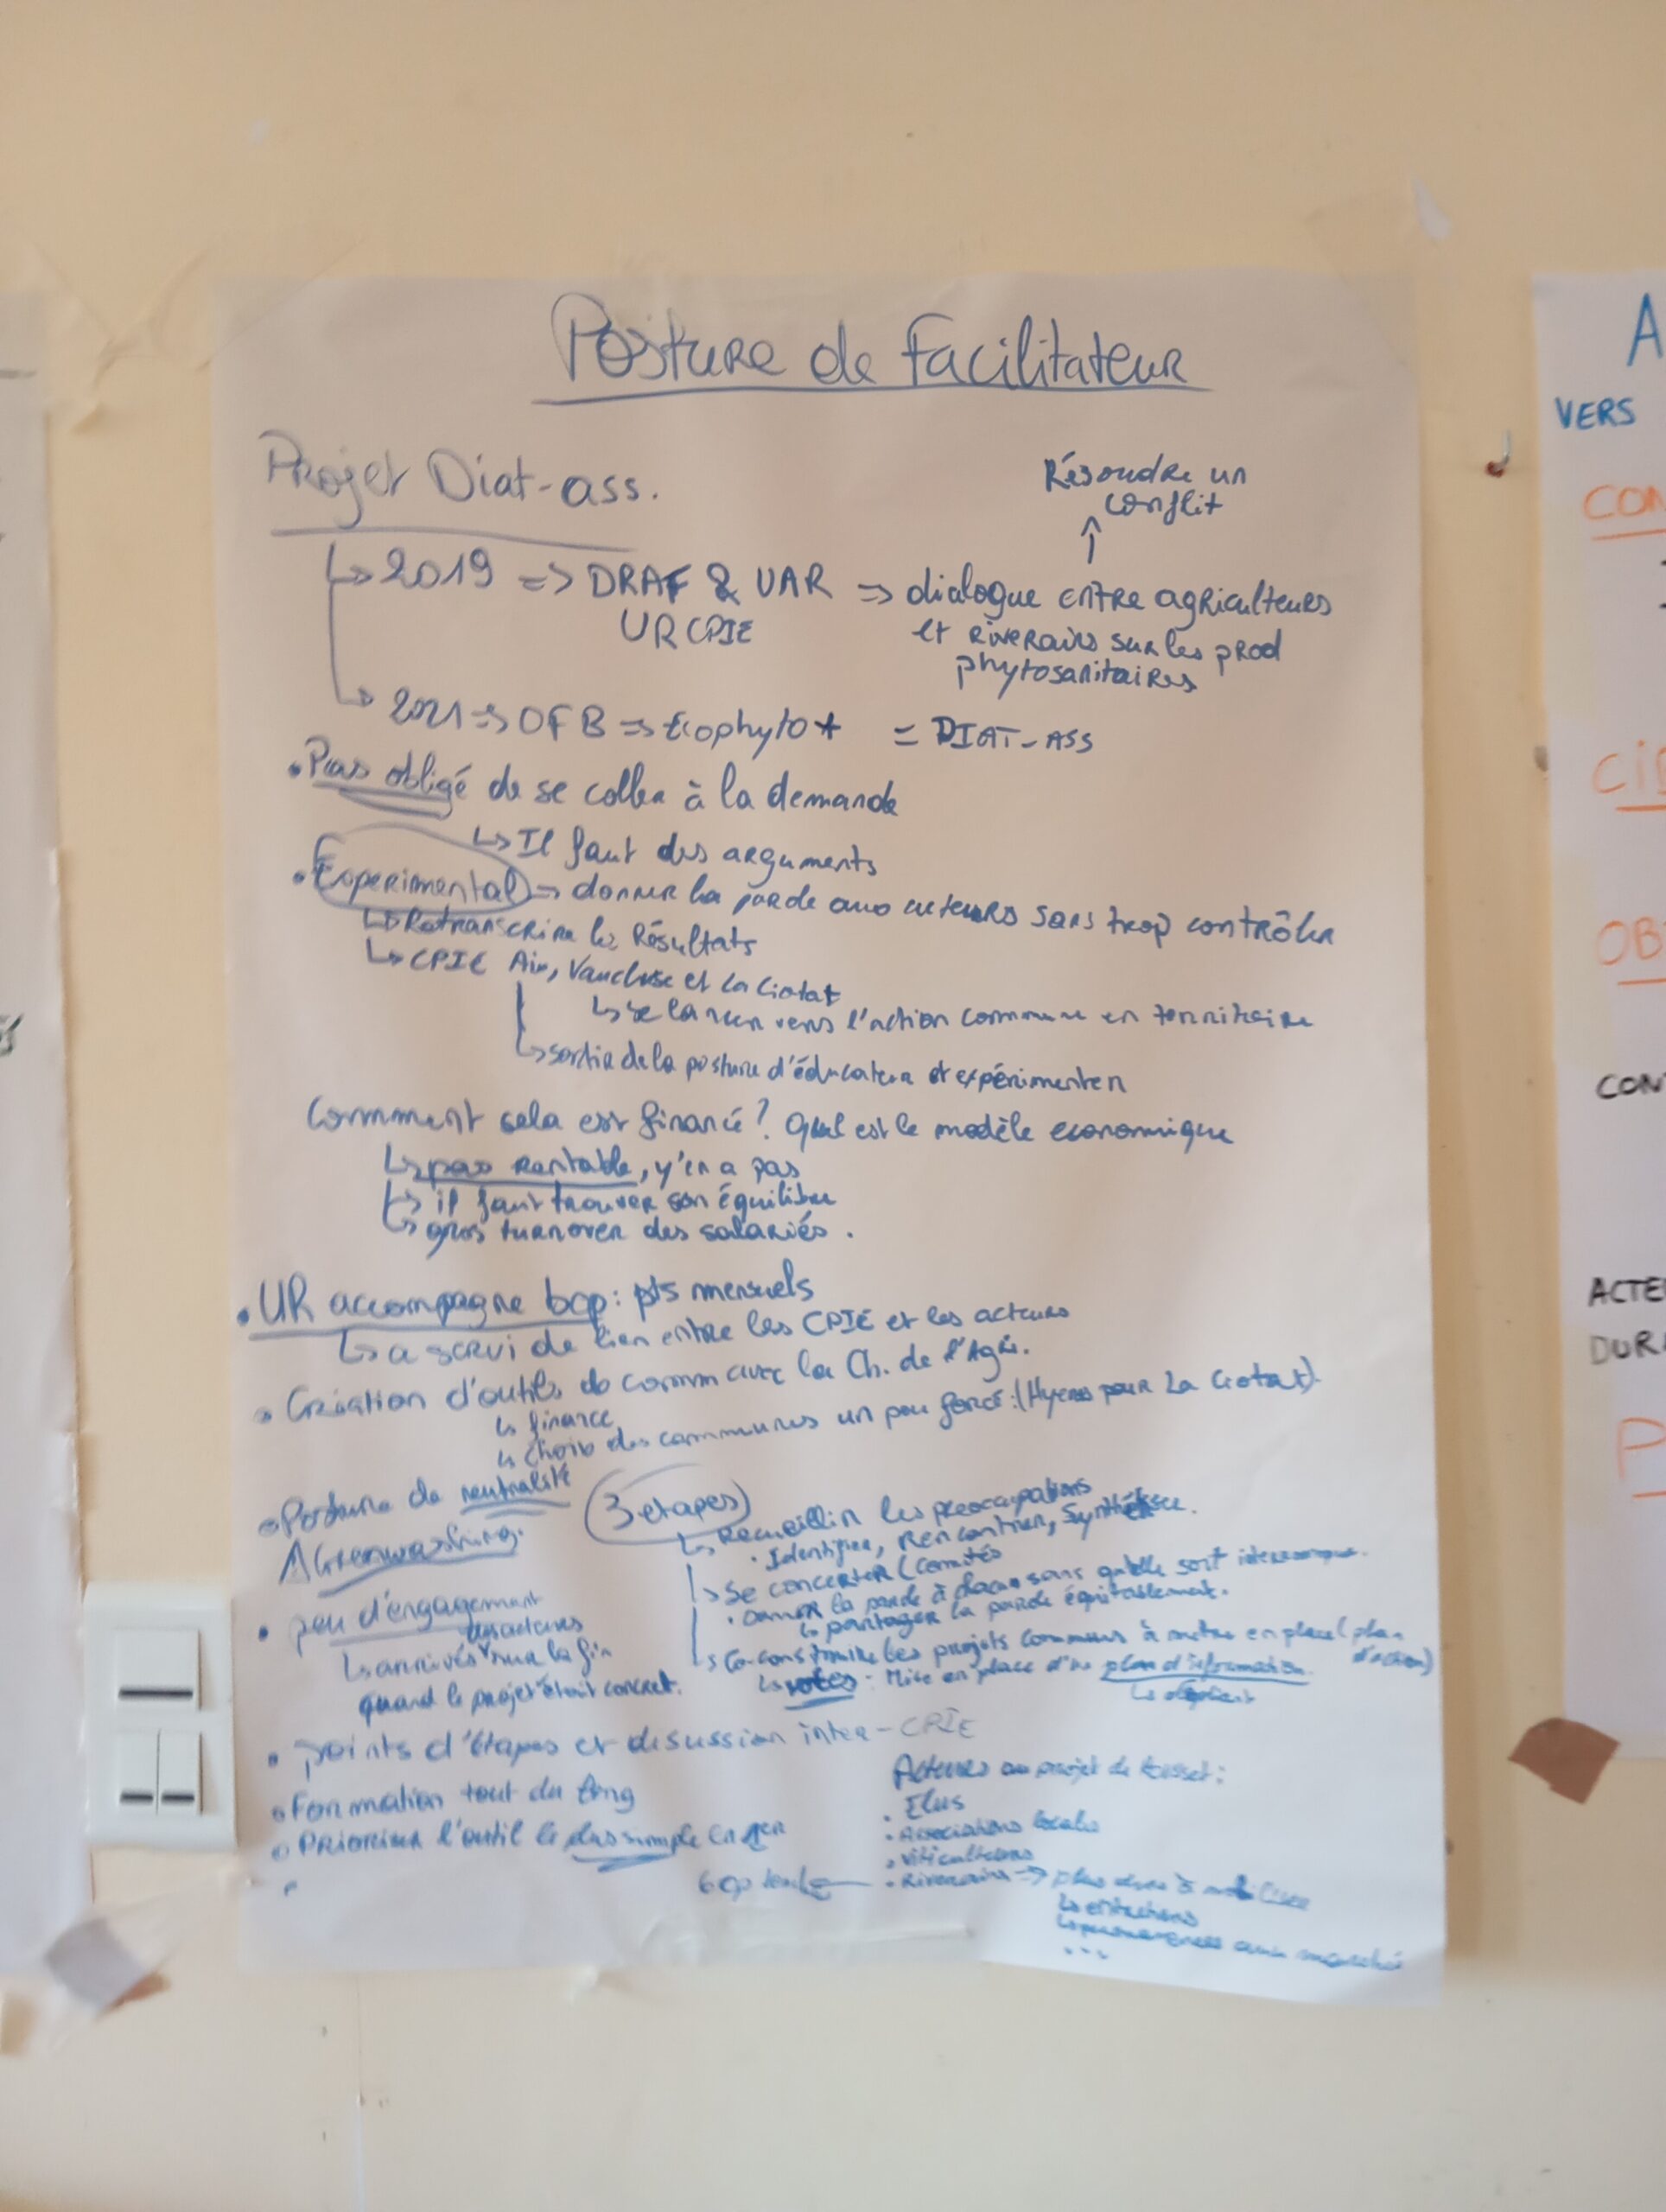 Posture de facilitateur
Projet Diat-ass.
Résoudre un
conflit
↑
↳ 2019 => DRAF & VAR => dialogue entre agriculteurs
URCPIE et riverains sur les prod
phytosanitaires
↳ 2021 => OFB => Ecophyto + = DIAT-ASS
• Pas obligé de se coller à la demande
↳ Il faut des arguments
• Experimental => donner la parole aux acteurs sans trop contrôler
↳ Retranscrire les Résultats
↳ CPIE Aix, Vaucluse et La Ciotat
↳ se lancer vers l'action commune en territoire
↳ sortir de la posture d'éducateur et expérimenter
Comment cela est financé ? Quel est le modèle economique
↳ pas rentable, y'en a pas
↳ il faut trouver son équilibre
↳ gros turnover des salariés.
• UR accompagne bcp : pts mensuels
↳ a servi de lien entre les CPIE et les acteurs
• Création d'outils de comm avec la Ch. de l'Agri.
↳ finance
↳ Choix des communes un peu forcé : (Hyeres pour La Ciotat)
• Posture de neutralité
⚠ Greenwashing.
• peu d'engagement
des acteurs
↳ arrivés sur la fin
quand le projet était concret.
3 etapes
↳ Recueillir les préoccupations
• Identifier, Rencontrer, Synthèse.
↳ Se concerter (comités
• donner la parole à chacun sans qu'elle soit
↳ partager la parole équitablement.
↳ Co-construire les projets communs à mettre en place (plan
d'action)
↳ votes : Mise en place d'un plan d'information.
• points d'étapes et disussion inter-CPIE
• Formation tout du long
• PRioriser l'outil le plus simple
Acteurs au projet de :
• Elus
• Associations locales
• Viticulteurs
• Riverains → plus durs à mobiliser
↳ entretiens
↳ aux marchés
...
A
VERS
CON
OB
CONT
ACTE
DUR
P